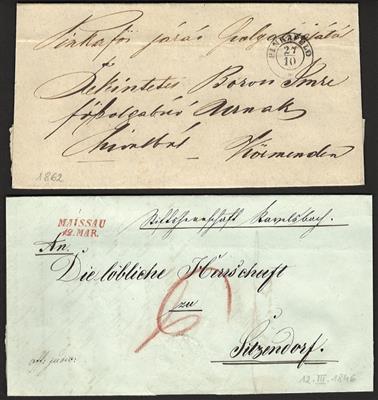 Pinkafői járás Szolgabírójától
PINKAFELD
27
10
Tekintetes Boros Imre
főszolgabíró Urnak
Hivatalból
Körmenden
1862
MAISSAU
12. MAR.
Stiftsherrschaft Ravelsbach.
An
Die löbliche Herrschaft
zu
6
Sitzendorf.
12. III. 1846